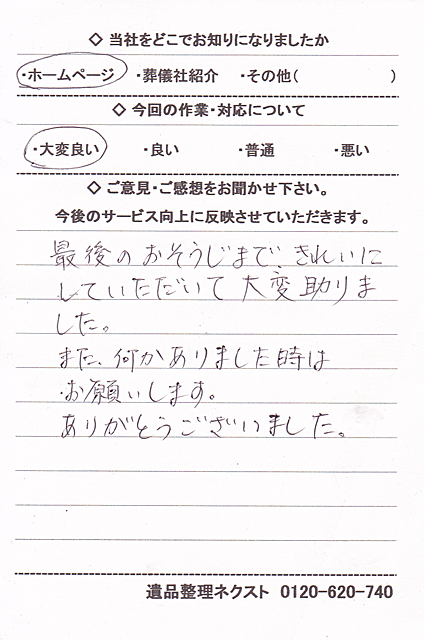 ◇ 当社をどこでお知りになりましたか
・ホームページ ・葬儀社紹介 ・その他( )
◇ 今回の作業・対応について
・大変良い ・良い ・普通 ・悪い
◇ ご意見・ご感想をお聞かせ下さい。
今後のサービス向上に反映させていただきます。
最後のおそうじまで、きれいに
していただいて大変助りま
した。
また、何かありました時は
お願いします。
ありがとうございました。
遺品整理ネクスト 0120-620-740